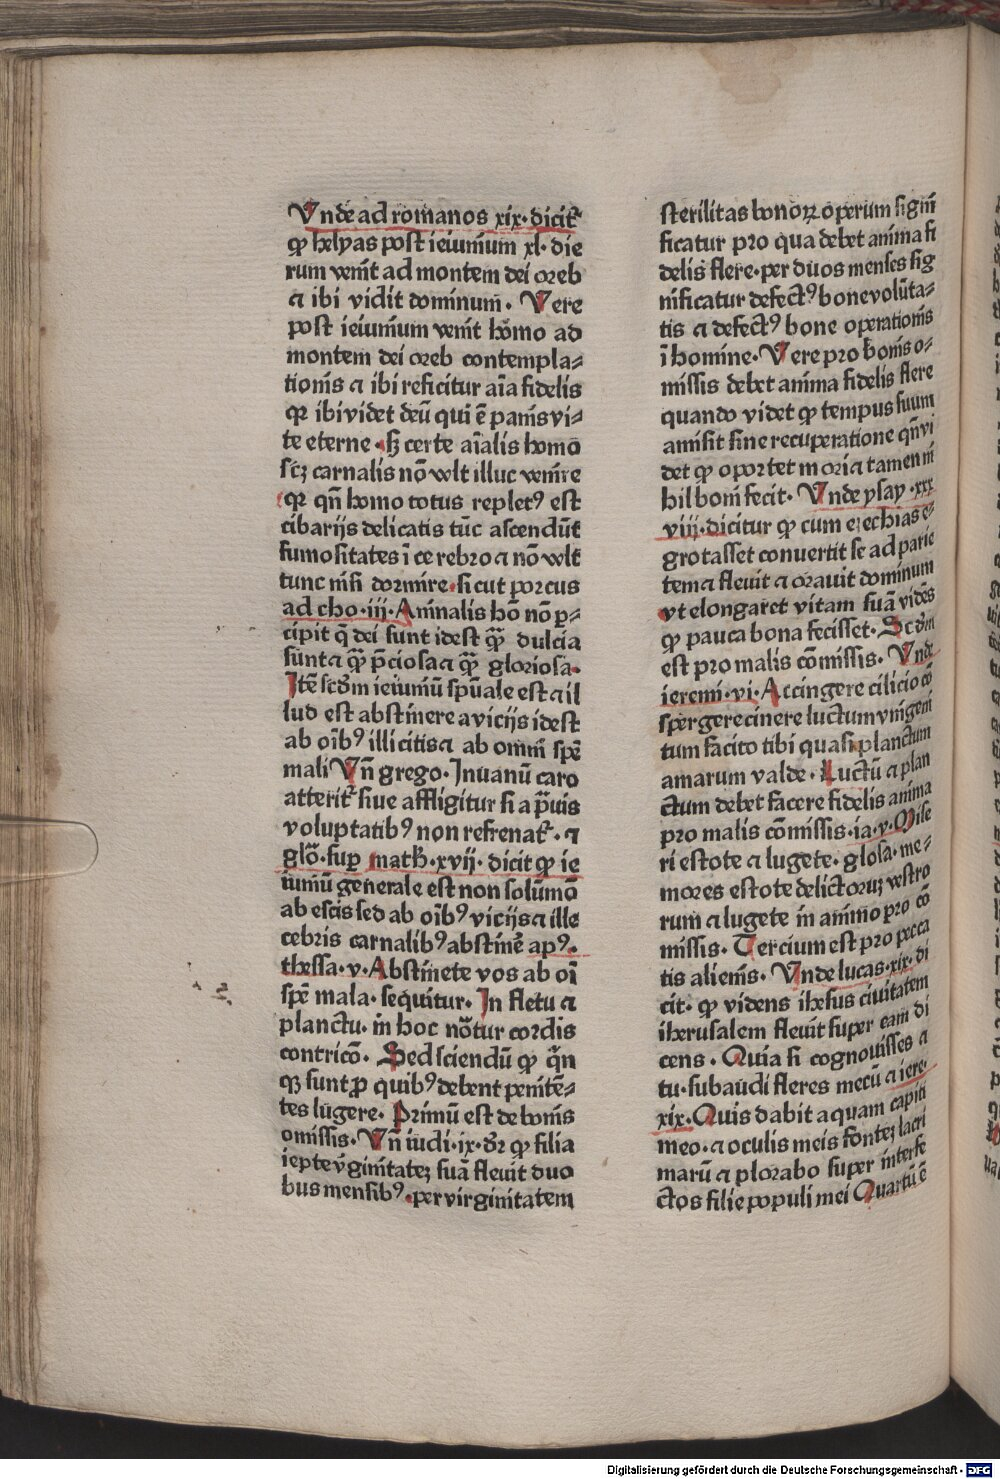 Vnde ad romanos xix· dicit᷑
ꝙ helyas post ieiunium xl· die
rum venit ad montem dei oreb
a ibi vidit dominum· Vere
post ieiunium venit homo ad
montem dei oreb contempla⸗
tionis a ibi reficitur aīa fidelis
qꝛ ibi videt deū qui ē panis vi⸗
te eterne· sꝫ certe aīalis homo
scꝫ carnalis nō wlt illuc venire
qꝛ qñ homo totus repletꝰ est
cibarijs delicatis tūc ascendūt
fumositates ī cerebro a nō wlt
tunc nisi dormire· sicut porcus
ad cho·iij· Animalis hō nō p̲⸗
cipit q̄ dei sunt idest qȝ̄ dulcia
sunt a qȝ̄ p̄ciosa a qȝ̄ gloriosa·
Itē scd̄m ieiuniū spūale est a il
lud est abstinere a vicijs idest
ab oībꝰ illicitis a ab omni spē
mali Vñ grego· Inuanū caro
atterit᷑ siue affligitur si a p̄uis
voluptatibꝰ non refrenat᷑· a
glō· sup̲ math·xvij· dicit ꝙ ie
iuniū generale est non solūmō
ab escis sed ab oībꝰ vicijs a ille
cebris carnalibꝰ abstinē apꝰ·
thessa·v· Abstinete vos ab oī
spē mala· sequitur· In fletu a
planctu· in hoc nōtur cordis
contricō· Sed sciendū ꝙ q̄n
qȝ sunt ꝓ quibꝰ debent penitē⸗
tes lugere· Primū est de bonis
omissis· Vñ iudi·ix· dꝛ ꝙ filia
iepte v̄ginitatez suā fleuit duo
bus mensibꝰ· per virginitatem
sterilitas bonoꝝ operum signi
ficatur pro qua debet anima fi
delis flere· per duos menses sig
nificatur defectꝰ bone volūta⸗
tis a defectꝰ bone operationis
ī homine· Vere pro bonis o⸗
missis debet anima fidelis flere
quando videt ꝙ tempus suum
amisit sine recuperatione qñ vi
det ꝙ oportet mori a tamen ni
hil boni fecit· Vnde ysay·xxx
viij· dicitur ꝙ cum ezechias e⸗
grotasset conuertit se ad parie
tem a fleuit a orauit dominum
vt elongaret vitam suā vidēs
ꝙ pauca bona fecisset· Scd̄m
est pro malis cōmissis· Vnde
ieremi·vi· Accingere cilicio cō
spergere cinere luctum vnigeni
tum facito tibi quasi planctum
amarum valde· Luctū a plan
ctum debet facere fidelis anima
pro malis cōmissis· ia·v· Mise
ri estote a lugete· glosa· me⸗
mores estote delictoruꝫ vestro
rum a lugete in animo pro cō
missis· Tercium est pro pecca
tis alienis· Vnde lucas·xix· di
cit· ꝙ videns ihesus ciuitatem
iherusalem fleuit super eam di
cens· Quia si cognouisses a
tu· subaudi fleres mecū a iere·
xix· Quis dabit aquam capiti
meo· a oculis meis fontez lacri
marū a plorabo super interfe
ctos filie populi mei Quartū ē
Digitalisierung gefördert durch die Deutsche Forschungsgemeinschaft - DFG